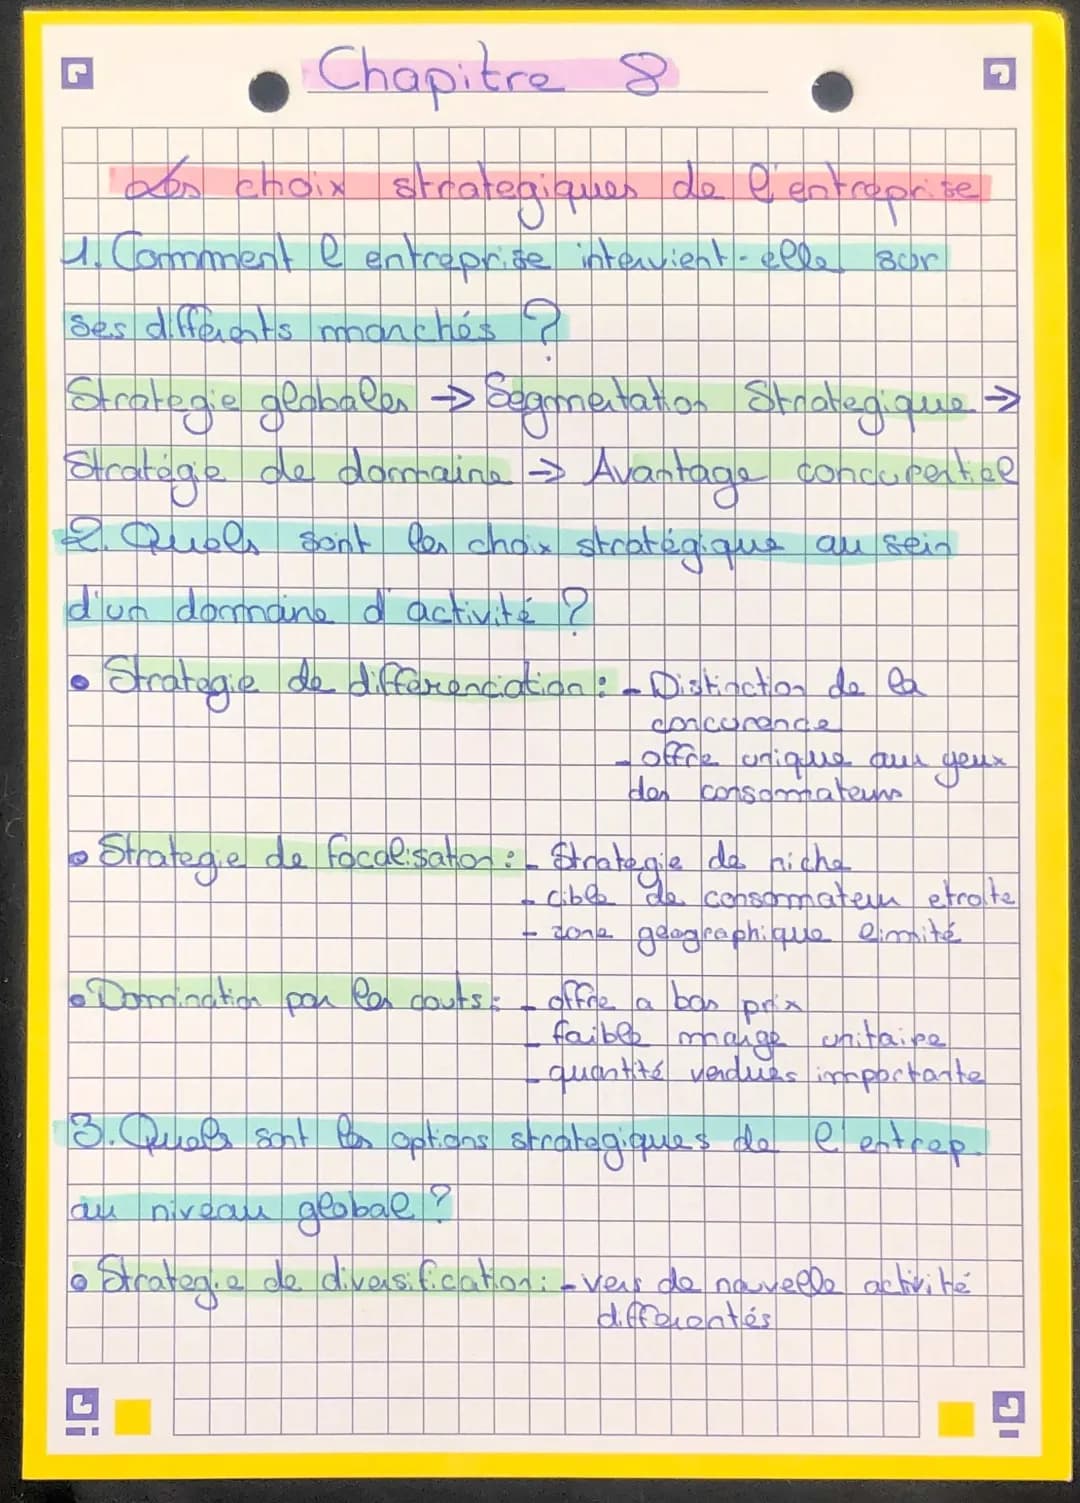 Chapitre 8
Les choix strategiques de l'entreprise
1. Commment l'entreprise intervient-elle sur
ses différents marchés ?
Strategie globales → Segmentation Strategique →
Stratégie de domaine → Avantage concurentiel
2. Quels sont les choix stratégique au sein
d'un domaine d'activité ?
• Strategie de différenciation : - Distinction de la
concurence
- offre unique aux yeux
des consommateurs
• Strategie de focalisation : - Strategie de niche
- cible de consommateur etroite
- zone geographique limité
• Domination par les couts : - offre a bas prix
- faible marge unitaire
- quantité vendues importante
3. Quels sont les options strategiques de l'entrep.
au niveau global ?
• Strategie de diversification : - vers de nouvelle activité
différentés